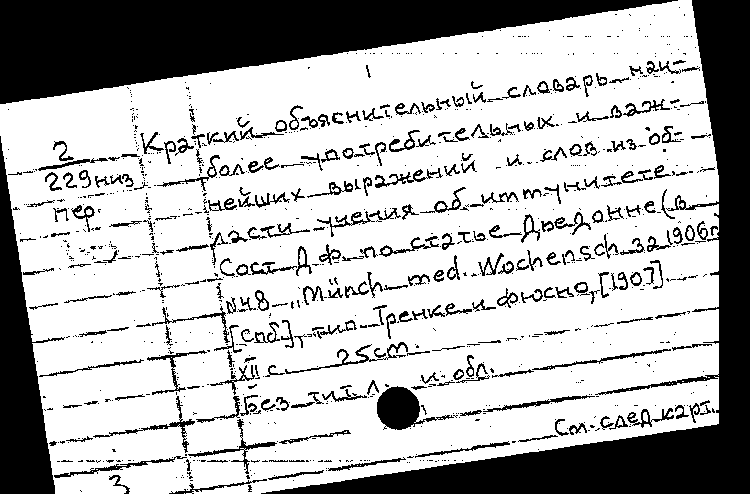 1
2
229 низ
пер.
Краткий объяснительный словарь наи-
более употребительных и важ-
нейших выражений и слов из об-
ласти учения об иммунитете.
Сост Д Ф. по статье Дьедонне (в
N48 „Münch med. Wochensch за 1906г
[Спб], тип Тренке и Фюсно, [1907]
XII с. 25см.
Без тит л. и обл.
См. след карт.
3